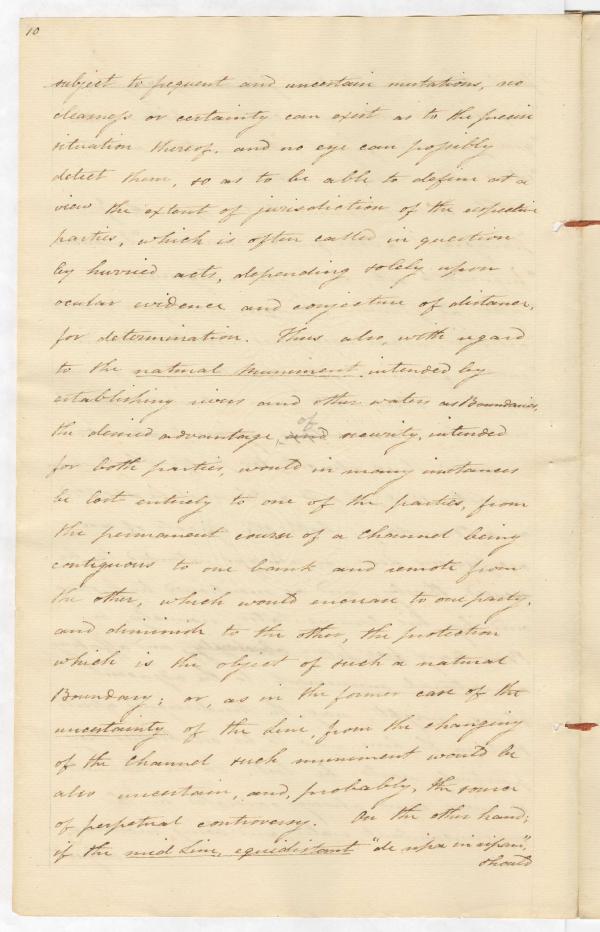 10
subject to frequent and uncertain mutations, no
clearness or certainty can exist as to the precise
situation thereof, and no eye can possibly
detect them, so as to be able to define at a
view the extent of jurisdiction of the respective
parties, which is often called in question
by hurried acts, depending solely upon
ocular evidence and conjecture of distance,
for determination. Thus also, with regard
to the natural muniment intended by
establishing rivers and other waters as Boundaries,
of
the desired advantage, and security, intended
for both parties, would in many instances
be lost entirely to one of the parties, from
the permanent course of a Channel being
contiguous to one bank and remote from
the other, which would increase to one party,
and diminish to the other, the protection
which is the object of such a natural
Boundary; or, as in the former case of the
uncertainty of the Line, from the changing
of the Channel such muniment would be
also uncertain, and, probably, the source
of perpetual controversy. On the other hand;
if the mid Line, equidistant "de ripa in ripam",
should